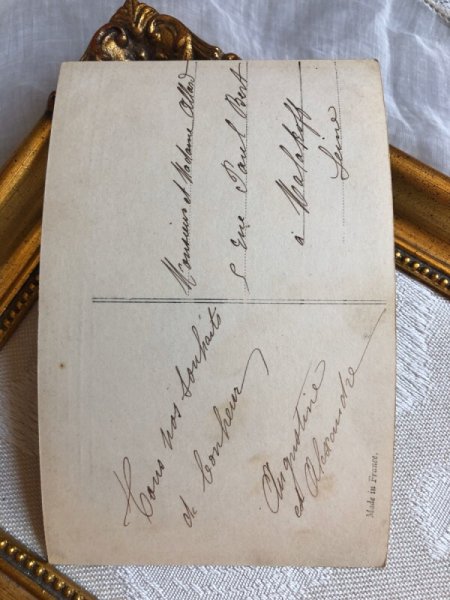 Tous nos souhaits
de bonheur
Augustine
et Alexandre
Made in France.
Monsieur et Madame Allard
5 rue Paul Bert
à Malakoff
Seine